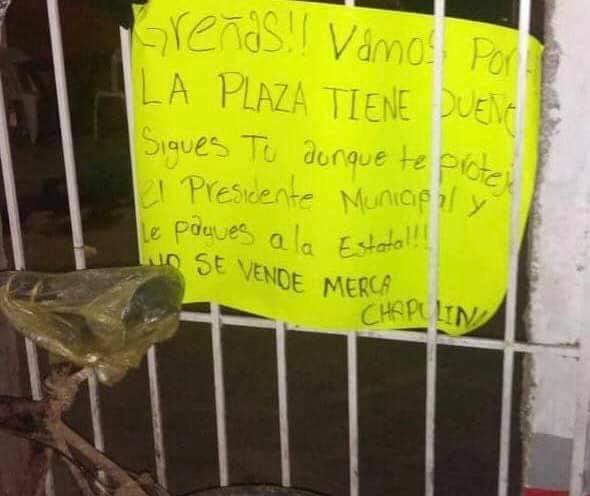 Greñas!! Vamos Por
LA PLAZA TIENE DUEÑO
Sigues Tu aunque te protej
el Presidente Municipal y
Le pagues a la Estatal!!
NO SE VENDE MERCA
CHAPULIN